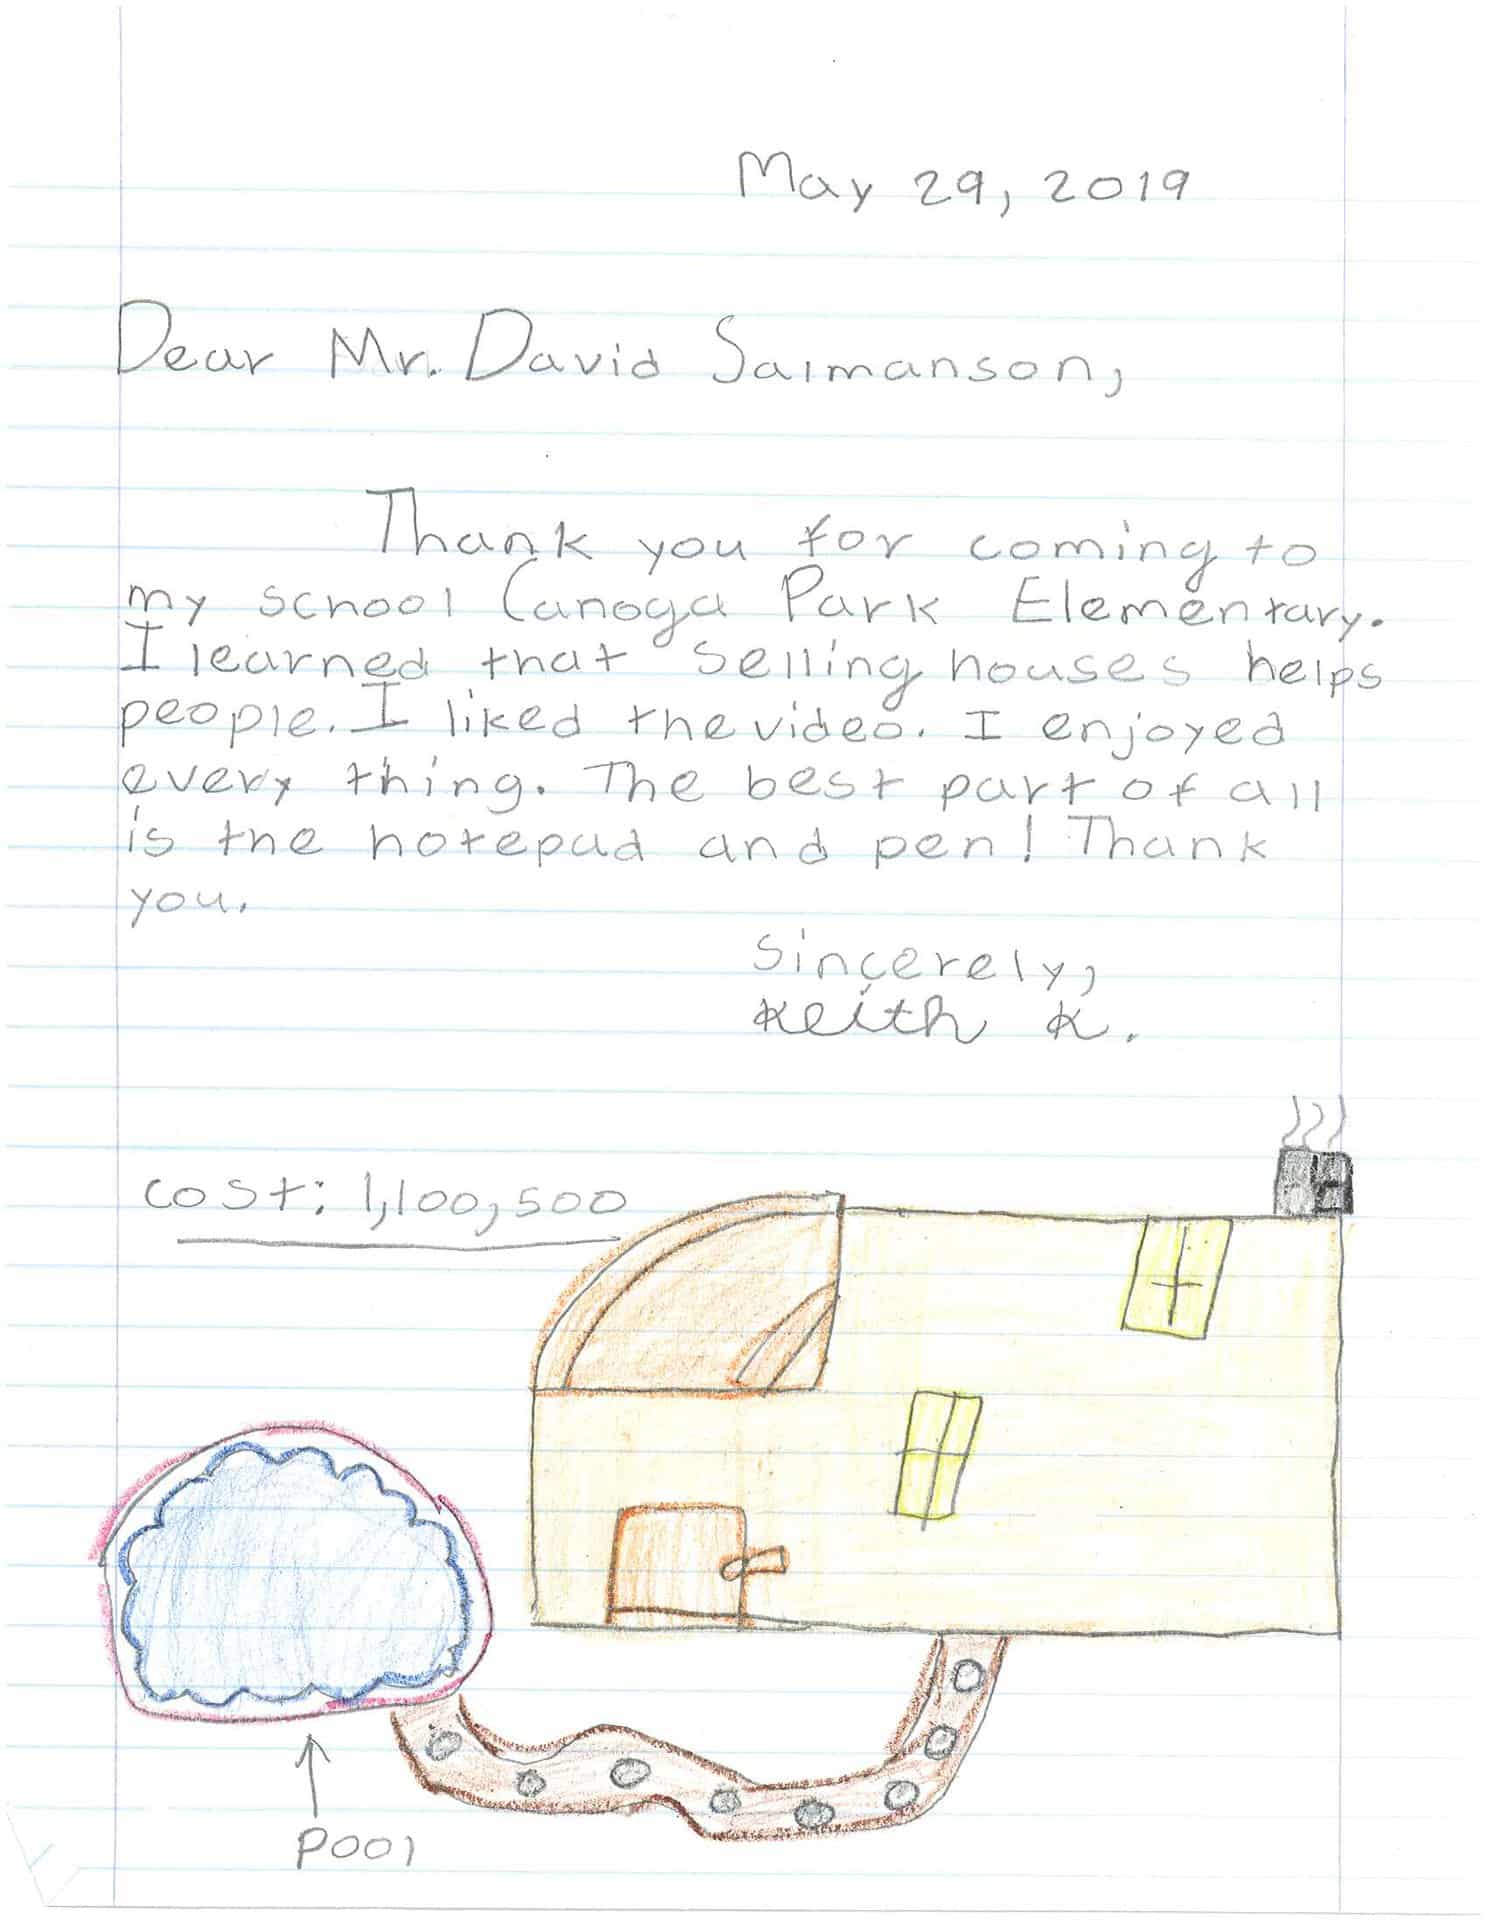 May 29, 2019
Dear Mr. David Salmanson,
Thank you for coming to
my school Canoga Park Elementary.
I learned that selling houses helps
people. I liked the video. I enjoyed
every thing. The best part of all
is the notepad and pen! Thank
you.
Sincerely,
Keith K.
cost: 1,100,500
pool